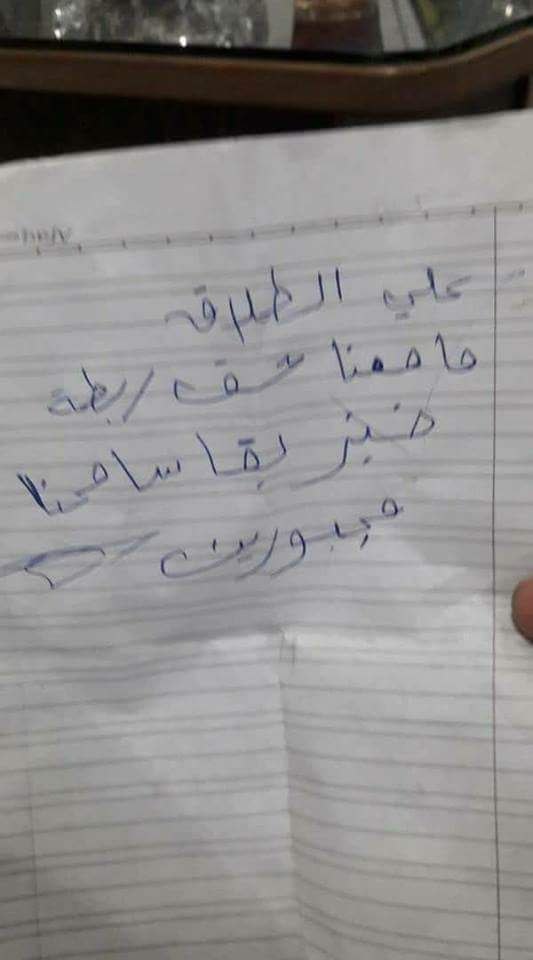 علي الطلاق
ما معنا حق ربطة
خبز بقا سامحنا
مجبورين